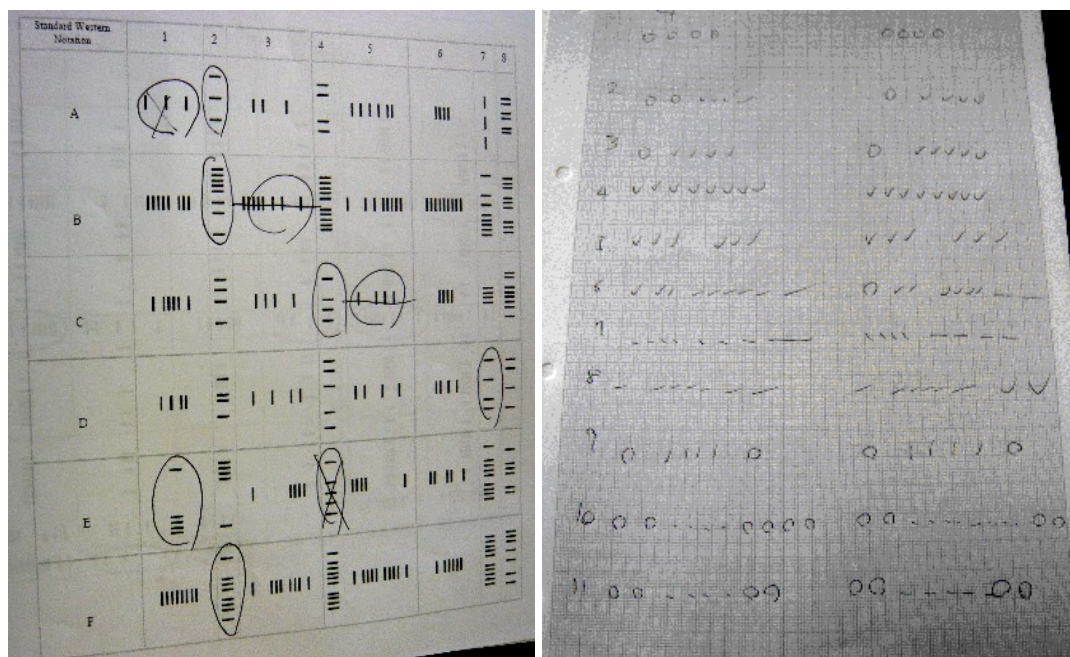 Standard Western
Notation
1 2 3 4 5 6 7 8
A
B
C
D
E
F
2
3
4
5
6
7
8
9
10
11